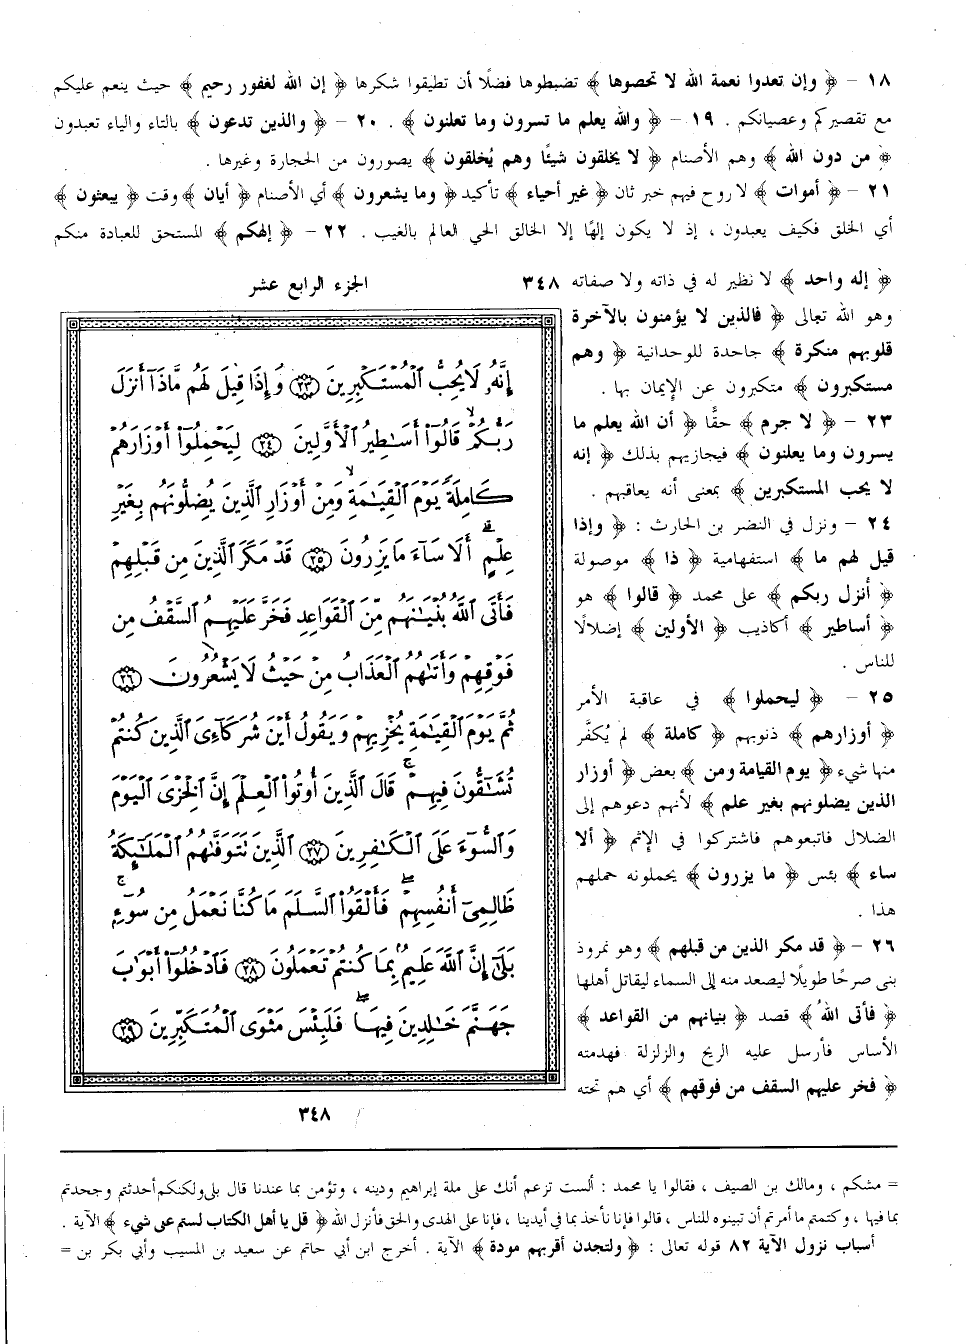 ١٨ - ﴿ وإن تعدوا نعمة الله لا تحصوها ﴾ تضبطوها فضلًا أن تطيقوا شكرها ﴿ إن الله لغفور رحيم ﴾ حيث ينعم عليكم
مع تقصيركم وعصيانكم . ١٩ - ﴿ والله يعلم ما تسرون وما تعلنون ﴾ . ٢٠ - ﴿ والذين تدعون ﴾ بالتاء والياء تعبدون
﴿ من دون الله ﴾ وهم الأصنام ﴿ لا يخلقون شيئًا وهم يُخلقون ﴾ يصورون من الحجارة وغيرها .
٢١ - ﴿ أموات ﴾ لا روح فيهم خبر ثان ﴿ غير أحياء ﴾ تأكيد ﴿ وما يشعرون ﴾ أي الأصنام ﴿ أيان ﴾ وقت ﴿ يبعثون ﴾
أي الخلق فكيف يعبدون ، إذ لا يكون إلهًا إلا الخالق الحي العالم بالغيب . ٢٢ - ﴿ إلهكم ﴾ المستحق للعبادة منكم
﴿ إله واحد ﴾ لا نظير له في ذاته ولا صفاته
وهو الله تعالى ﴿ فالذين لا يؤمنون بالآخرة
قلوبهم منكرة ﴾ جاحدة للوحدانية ﴿ وهم
مستكبرون ﴾ متكبرون عن الإيمان بها .
٢٣ - ﴿ لا جرم ﴾ حقًّا ﴿ أن الله يعلم ما
يسرون وما يعلنون ﴾ فيجازيهم بذلك ﴿ إنه
لا يحب المستكبرين ﴾ بمعنى أنه يعاقبهم .
٢٤ - ونزل في النضر بن الحارث : ﴿ وإذا
قيل لهم ما ﴾ استفهامية ﴿ ذا ﴾ موصولة
﴿ أنزل ربكم ﴾ على محمد ﴿ قالوا ﴾ هو
﴿ أساطير ﴾ أكاذيب ﴿ الأولين ﴾ إضلالًا
للناس .
٢٥ - ﴿ ليحملوا ﴾ في عاقبة الأمر
﴿ أوزارهم ﴾ ذنوبهم ﴿ كاملة ﴾ لم يُكفَّر
منها شيء ﴿ يوم القيامة ومن ﴾ بعض ﴿ أوزار
الذين يضلونهم بغير علم ﴾ لأنهم دعوهم إلى
الضلال فاتبعوهم فاشتركوا في الإثم ﴿ ألا
ساء ﴾ بئس ﴿ ما يزرون ﴾ يحملونه حملهم
هذا .
٢٦ - ﴿ قد مكر الذين من قبلهم ﴾ وهو نمروذ
بنى صرحًا طويلًا ليصعد منه إلى السماء ليقاتل أهلها
﴿ فأتى اللهُ ﴾ قصد ﴿ بنيانهم من القواعد ﴾
الأساس فأرسل عليه الريح والزلزلة فهدمته
﴿ فخر عليهم السقف من فوقهم ﴾ أي هم تحته
٣٤٨ الجزء الرابع عشر
إِنَّهُۥ لَا يُحِبُّ الْمُسْتَكْبِرِينَ ٢٣ وَإِذَا قِيلَ لَهُم مَّاذَآ أَنزَلَ
رَبُّكُمْ قَالُوٓا۟ أَسَٰطِيرُ الْأَوَّلِينَ ٢٤ لِيَحْمِلُوٓا۟ أَوْزَارَهُمْ
كَامِلَةً يَوْمَ الْقِيَٰمَةِ وَمِنْ أَوْزَارِ الَّذِينَ يُضِلُّونَهُم بِغَيْرِ
عِلْمٍ أَلَا سَآءَ مَا يَزِرُونَ ٢٥ قَدْ مَكَرَ الَّذِينَ مِن قَبْلِهِمْ
فَأَتَى اللَّهُ بُنْيَٰنَهُم مِّنَ الْقَوَاعِدِ فَخَرَّ عَلَيْهِمُ السَّقْفُ مِن
فَوْقِهِمْ وَأَتَىٰهُمُ الْعَذَابُ مِنْ حَيْثُ لَا يَشْعُرُونَ ٢٦
ثُمَّ يَوْمَ الْقِيَٰمَةِ يُخْزِيهِمْ وَيَقُولُ أَيْنَ شُرَكَآءِىَ الَّذِينَ كُنتُمْ
تُشَٰٓقُّونَ فِيهِمْ قَالَ الَّذِينَ أُوتُوا۟ الْعِلْمَ إِنَّ الْخِزْىَ الْيَوْمَ
وَالسُّوٓءَ عَلَى الْكَٰفِرِينَ ٢٧ الَّذِينَ تَتَوَفَّىٰهُمُ الْمَلَٰٓئِكَةُ
ظَالِمِىٓ أَنفُسِهِمْ فَأَلْقَوُا۟ السَّلَمَ مَا كُنَّا نَعْمَلُ مِن سُوٓءٍۭ
بَلَىٰٓ إِنَّ اللَّهَ عَلِيمٌۢ بِمَا كُنتُمْ تَعْمَلُونَ ٢٨ فَادْخُلُوٓا۟ أَبْوَٰبَ
جَهَنَّمَ خَٰلِدِينَ فِيهَا فَلَبِئْسَ مَثْوَى الْمُتَكَبِّرِينَ ٢٩
٣٤٨
= مشكم ، ومالك بن الصيف ، فقالوا يا محمد : ألست تزعم أنك على ملة إبراهيم ودينه ، وتؤمن بما عندنا قال بلى ولكنكم أحدثتم وجحدتم
بما فيها ، وكتمتم ما أمرتم أن تبينوه للناس ، قالوا فإنا نأخذ بما في أيدينا ، فإنا على الهدى والحق فأنزل الله ﴿ قل يا أهل الكتاب لستم على شيء ﴾ الآية .
أسباب نزول الآية ٨٢ قوله تعالى : ﴿ ولتجدن أقربهم مودة ﴾ الآية . أخرج ابن أبي حاتم عن سعيد بن المسيب وأبي بكر بن =